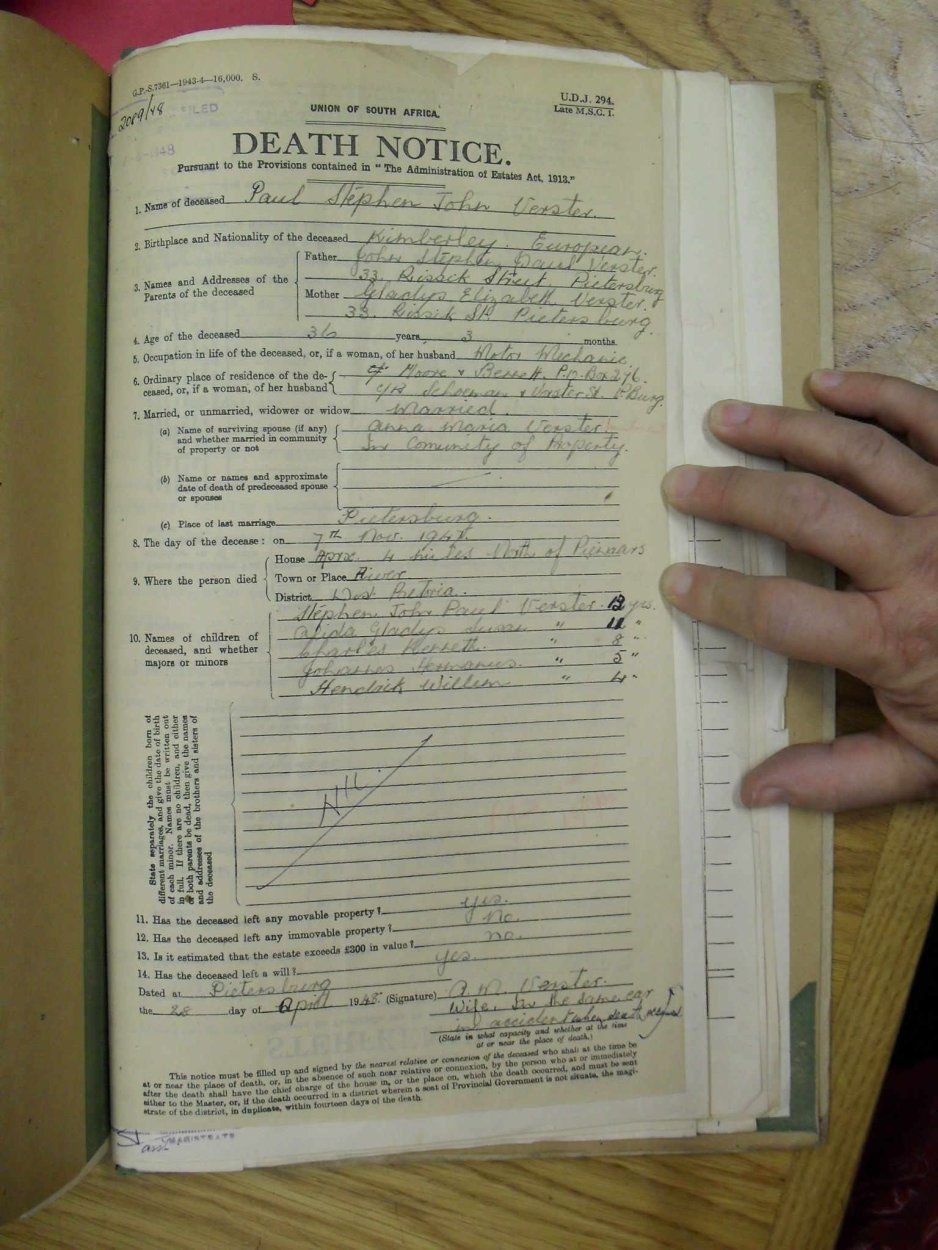 G.P.-S.7361—1943-4—16,000. S.
2089/48
FILED
UNION OF SOUTH AFRICA.
U.D.J. 294.
Late M.S.C. 1.
DEATH NOTICE.
Pursuant to the Provisions contained in "The Administration of Estates Act, 1913."
1. Name of deceased Paul Stephen John Verster.
2. Birthplace and Nationality of the deceased Kimberley. European.
3. Names and Addresses of the Parents of the deceased
Father John Stephen Paul Verster.
33. Rissick Street Pietersburg
Mother Gladys Elizabeth Verster.
33. Rissik St. Pietersburg.
4. Age of the deceased 36 years, 3 months.
5. Occupation in life of the deceased, or, if a woman, of her husband Motor Mechanic
6. Ordinary place of residence of the deceased, or, if a woman, of her husband
Moore & P.O. Box 276.
Schoeman & Vorster St. P.Burg.
7. Married, or unmarried, widower or widow Married.
(a) Name of surviving spouse (if any) and whether married in community of property or not
Anna Maria Verster.
In Comunity of Property.
(b) Name or names and approximate date of death of predeceased spouse or spouses
(c) Place of last marriage Pietersburg.
8. The day of the decease: on 7th Nov. 1947.
9. Where the person died
House Aprx. 4 miles North of Pienaars
Town or Place River
District Pretoria.
10. Names of children of deceased, and whether majors or minors
Stephen John Paul Verster. 12 yrs.
Alida Gladys Susan " 11 "
Charles " 8 "
Johannes Hermanus. " 5 "
Hendrik Willem " 4 "
State separately the children born of different marriages, and give the date of birth of each minor. Names must be written out in full. If there are no children, and either or both parents be dead, then give the names and addresses of the brothers and sisters of the deceased
11. Has the deceased left any movable property? yes.
12. Has the deceased left any immovable property? no.
13. Is it estimated that the estate exceeds £300 in value? no.
14. Has the deceased left a will? yes.
Dated at Pietersburg
the 28 day of April 1948. (Signature) A.M. Verster.
Wife. In the same car
in accident when death
(State in what capacity and whether at the time
at or near the place of death.)
This notice must be filled up and signed by the nearest relative or connexion of the deceased who shall at the time be
at or near the place of death, or, in the absence of such near relative or connexion, by the person who at or immediately
after the death shall have the chief charge of the house in, or the place on, which the death occurred, and must be sent
either to the Master, or, if the death occurred in a district wherein a seat of Provincial Government is not situate, the magi-
strate of the district, in duplicate, within fourteen days of the death.
MAGISTRATE